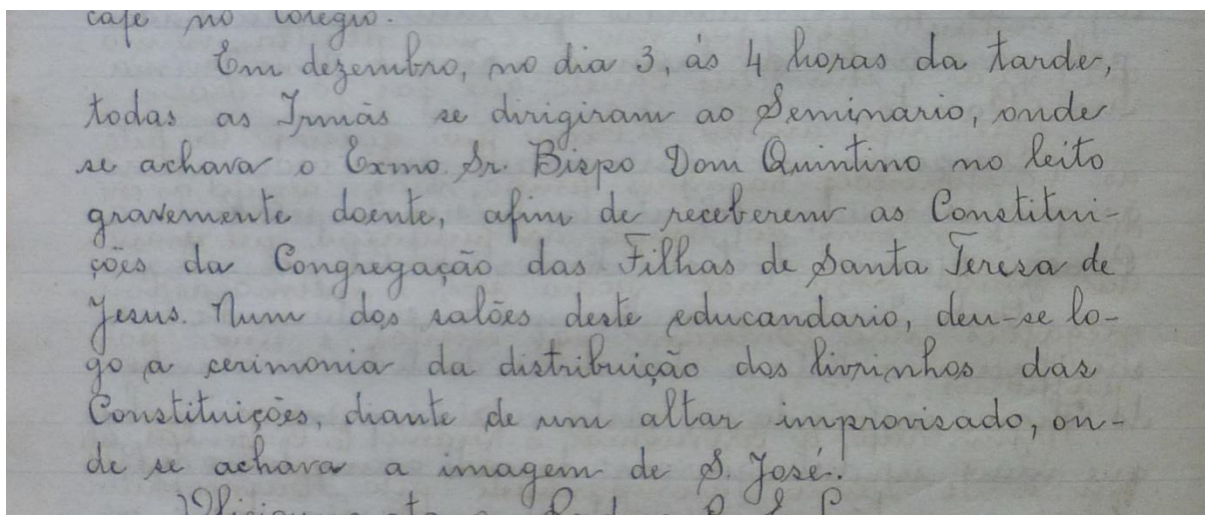 café no Colégio.
Em dezembro, no dia 3, ás 4 horas da tarde,
todas as Irmãs se dirigiram ao Seminario, onde
se achava o Exmo. Sr. Bispo Dom Quintino no leito
gravemente doente, afim de receberem as Constitui-
ções da Congregação das Filhas de Santa Teresa de
Jesus. Num dos salões deste educandario, deu-se lo-
go a cerimonia da distribuição dos livrinhos das
Constituições, diante de um altar improvisado, on-
de se achava a imagem de S. José.